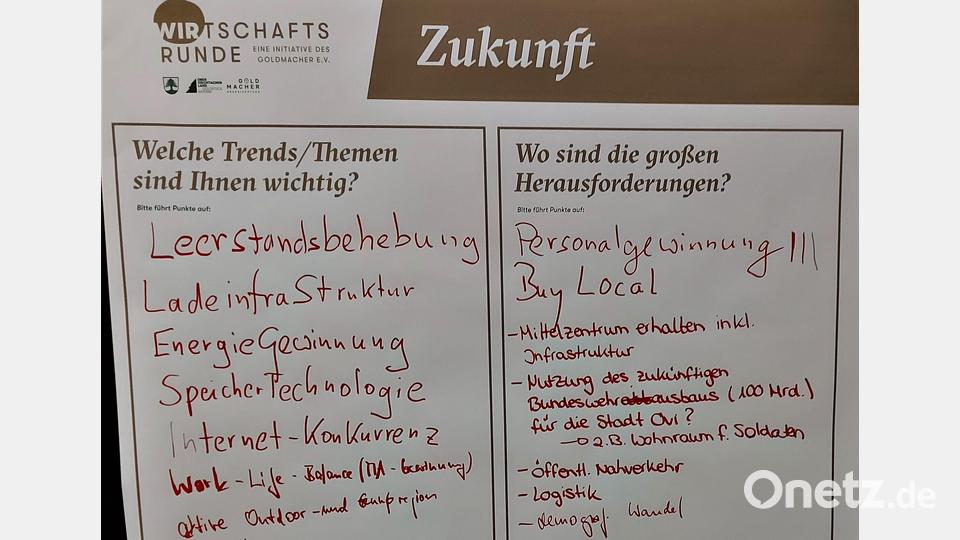 WIRTSCHAFTS
RUNDE EINE INITIATIVE DES
GOLDMACHER E.V.
GOLD
MACHER
Zukunft
Welche Trends/Themen
sind Ihnen wichtig?
Bitte führt Punkte auf:
Leerstandsbehebung
Ladeinfrastruktur
Energiegewinnung
Speichertechnologie
Internet-Konkurrenz
Work-Life-Balance (MA-Gewinnung)
aktive Outdoor- und region
Wo sind die großen
Herausforderungen?
Bitte führt Punkte auf:
Personalgewinnung |||
Buy Local
- Mittelzentrum erhalten inkl.
Infrastruktur
- Nutzung des zukünftigen
Bundeswehrausbaus (100 Mrd.)
für die Stadt Ovi?
→ z.B. Wohnraum f. Soldaten
- öffentl. Nahverkehr
- Logistik
- demograf. Wandel
Onetz.de